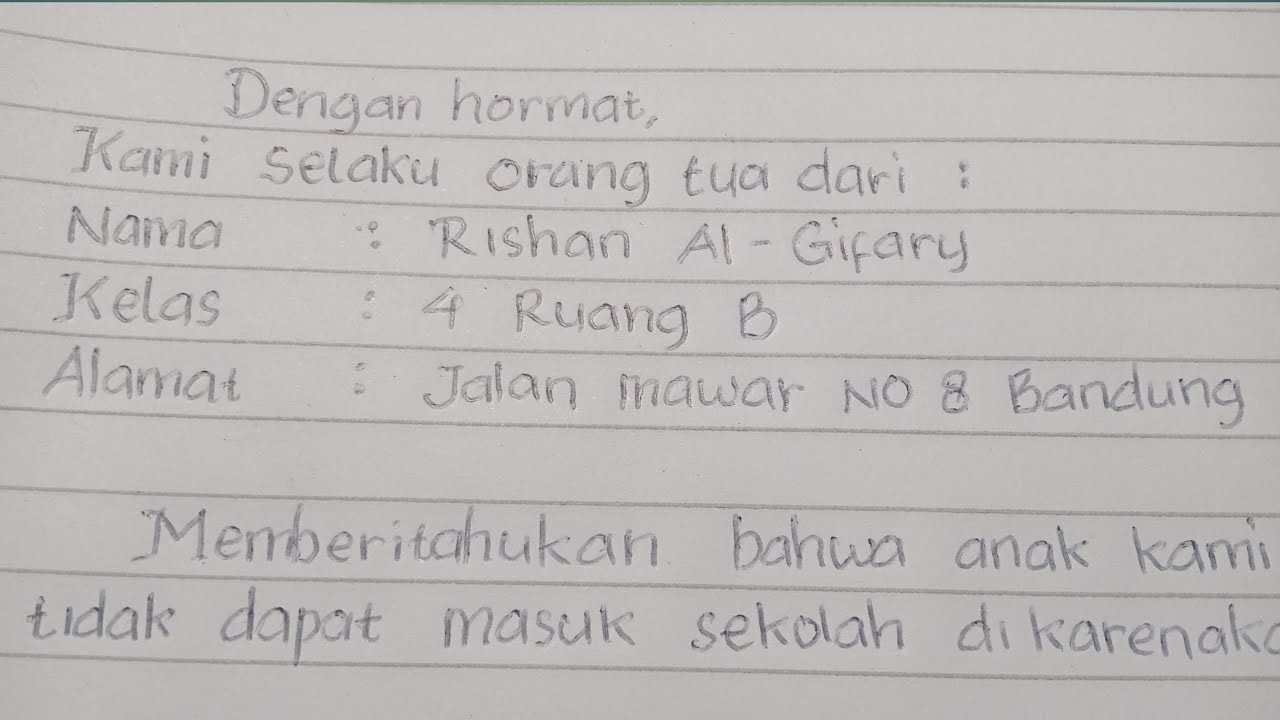 Dengan hormat,
Kami selaku orang tua dari :
Nama : Rishan Al-Gifary
Kelas : 4 Ruang B
Alamat : Jalan mawar NO 8 Bandung
Memberitahukan bahwa anak kami
tidak dapat masuk sekolah dikarenaka